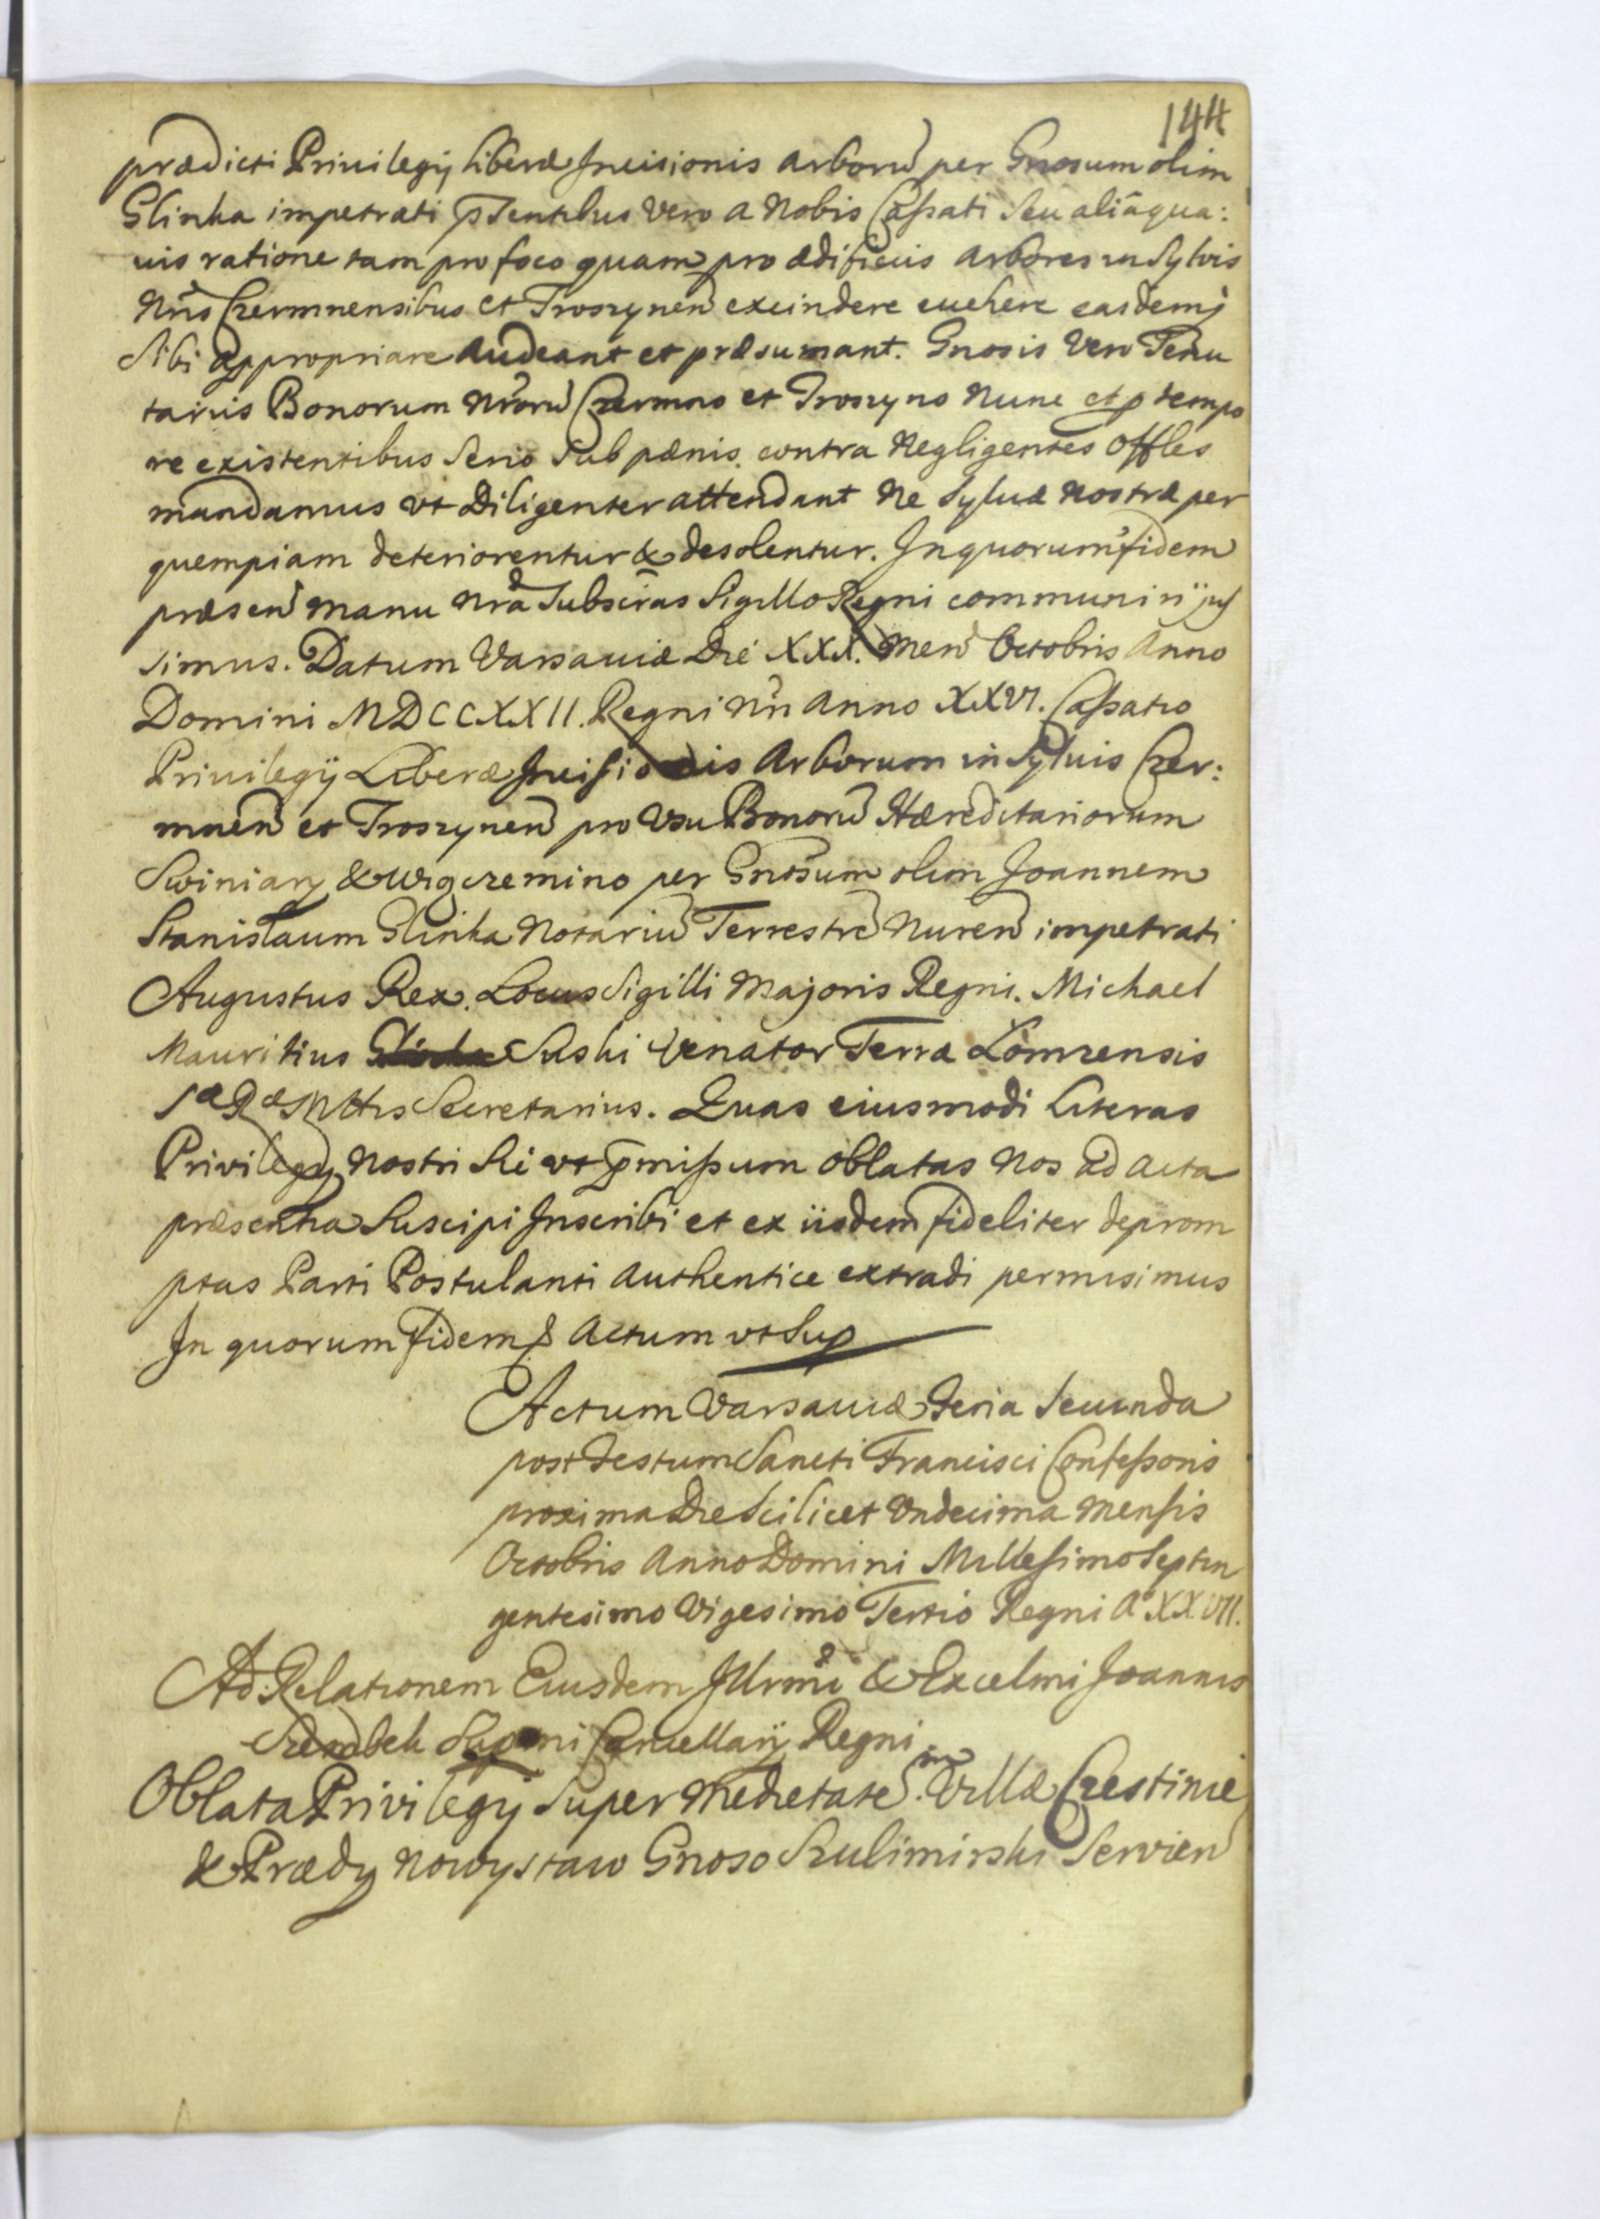 144
prædicti Privilegij liberæ Incisionis arborũ per Gnosum olim
Glinka impetrati p̃sentibus vero a Nobis Cassati seu aliâqua:
vis ratione tam pro foco quam pro ædificiis arbores in Sylvis
Nr̃is Czermnensibus et Troszynen̄ excindere evehere easdemq̨
sibi appropriare audeant et præsumant. Gnosis vero Tenu
tariis Bonorum Nr̃orũ Czermno et Troszyno nunc et p tempo
re existentibus serio sub pænis contra Negligentes Offles
mandamus vt diligenter attendant ne Sylvæ nostræ per
quempiam deteriorentur & desolentur. In quorum fidem
præsen̄ manu nr̃a subscr̃as Sigillo Regni communiri jus
simus. Datum Varsaviæ Die XXX. Men̄ Octobris Anno
Domini MDCCXXII. Regni Nr̃i anno XXVI. Cassatio
Privilegij Liberæ Incisionis Arborum in Sylvis Czer:
mnen̄ et Troszynen̄ pro Vsu Bonorũ Hæreditariorum
Swiniary & Wigczemino per Gnosum olim Joannem
Stanislaum Glinka Notariũ Terrestrẽ Nuren̄ impetrati
Augustus Rex. Locus Sigilli Majoris Regni. Michael
Mauritius Suski Venator Terræ Łomzensis
Sæ Ræ Mttis Secretarius. Quas eiusmodi literas
Privilegij nostri sic vt p̃missum oblatas nos ad acta
præsentia suscipi Inscribi et ex iisdem fideliter deprom
ptas Parti Postulanti authentice extradi permisimus
In quorum fidem & Actum vt Sup
Actum Varsaviæ Feria Secunda
post Festum Sancti Francisci Confessoris
proxima Die scilicet Vndecima Mensis
Octobris Anno Domini Millesimo Septin
gentesimo Vigesimo Tertio Regni Aº XXVII.
Ad Relationem Eiusdem Illr̃mi & Excelmi Joannis
Szembek Supremi Cancellarij Regni
Oblata Privilegij super medietatem Villæ Czestinie
& Prædij Nowystaw Gnoso Szulimirski Servien̄